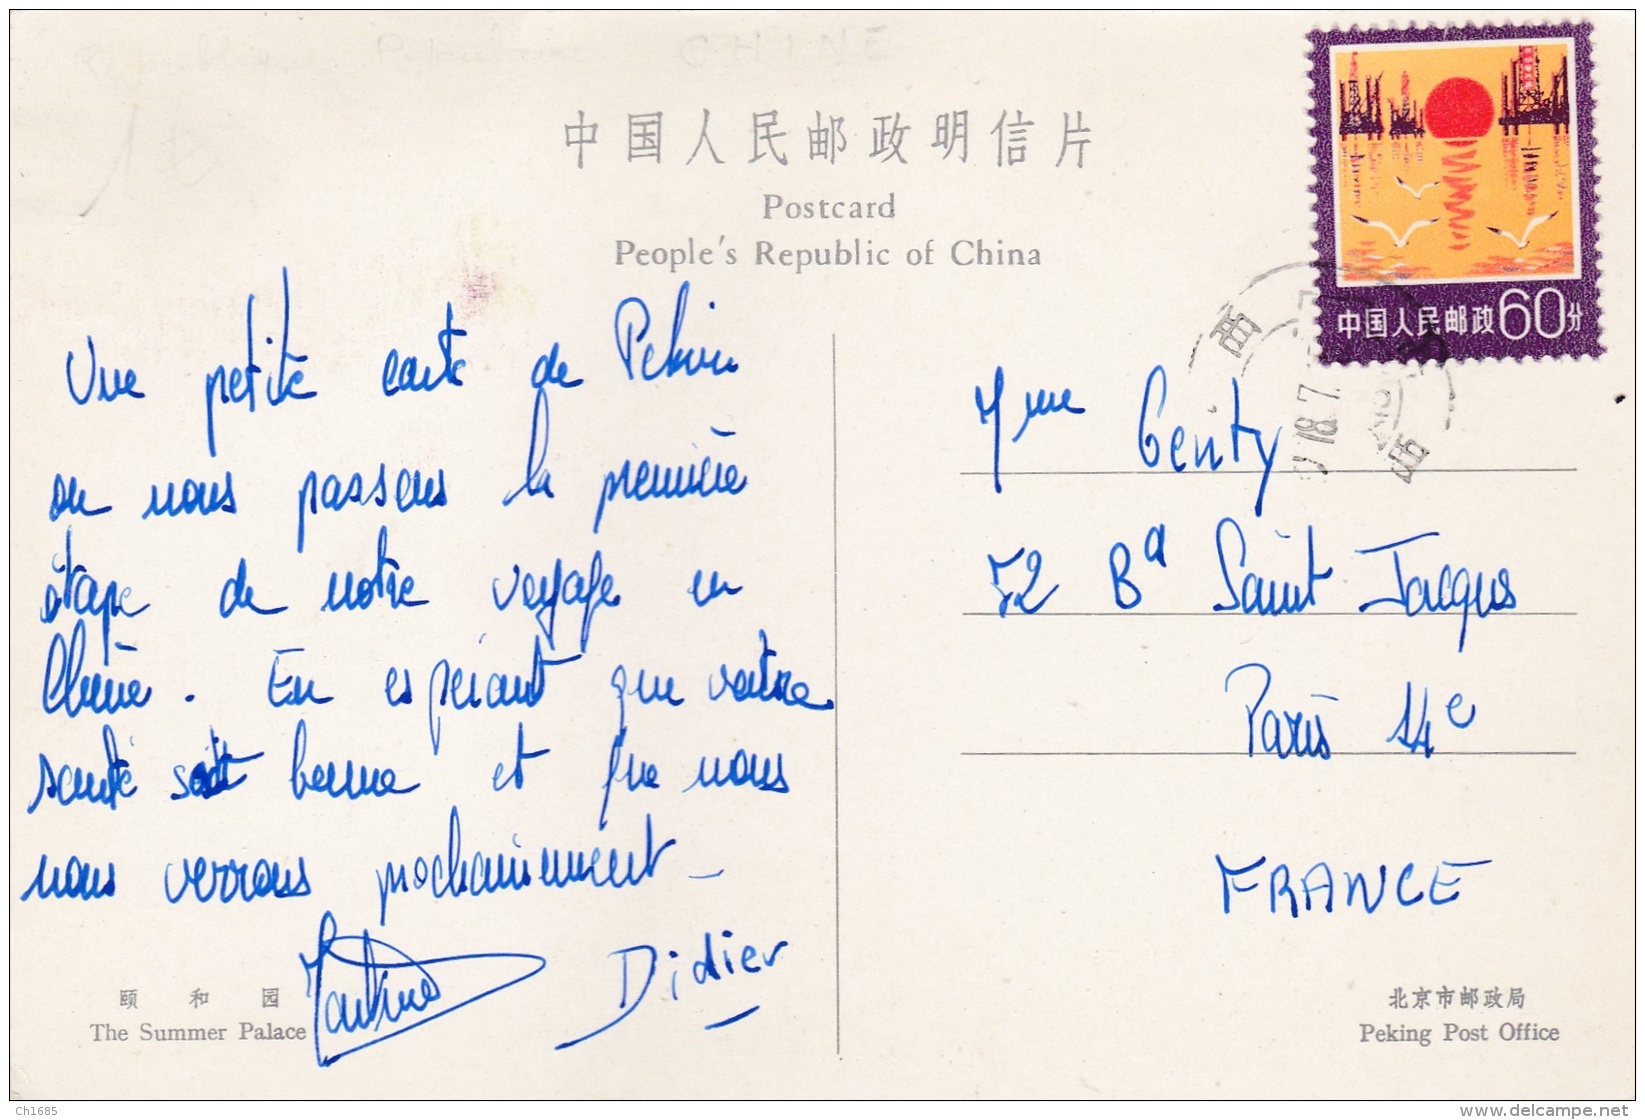 CHINE
中国人民邮政明信片
Postcard
People's Republic of China
中国人民邮政60分
Une petite carte de Pekin
ou nous passons la première
étape de notre voyage en
Chine. En espérant que votre
santé soit bonne et que nous
nous verrons prochainement_
Martine Didier
颐和园
The Summer Palace
西
18.7
西
Mme Genty
52 Bd Saint Jacques
Paris 14e
FRANCE
北京市邮政局
Peking Post Office
Ch1685
www.delcampe.net